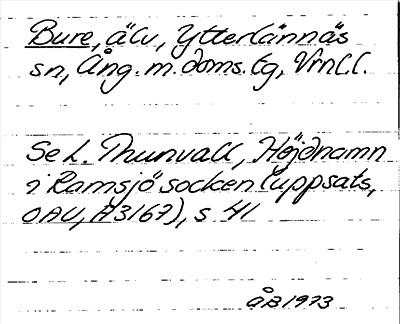 Bure, älv, Ytterlännäs
sn, Ång. m. doms. tg, Vrnl.l.
Se L. Thunvall, Höjdnamn
i Ramsjö socken (uppsats,
OAU, A3167), s. 41
ÅB 1973